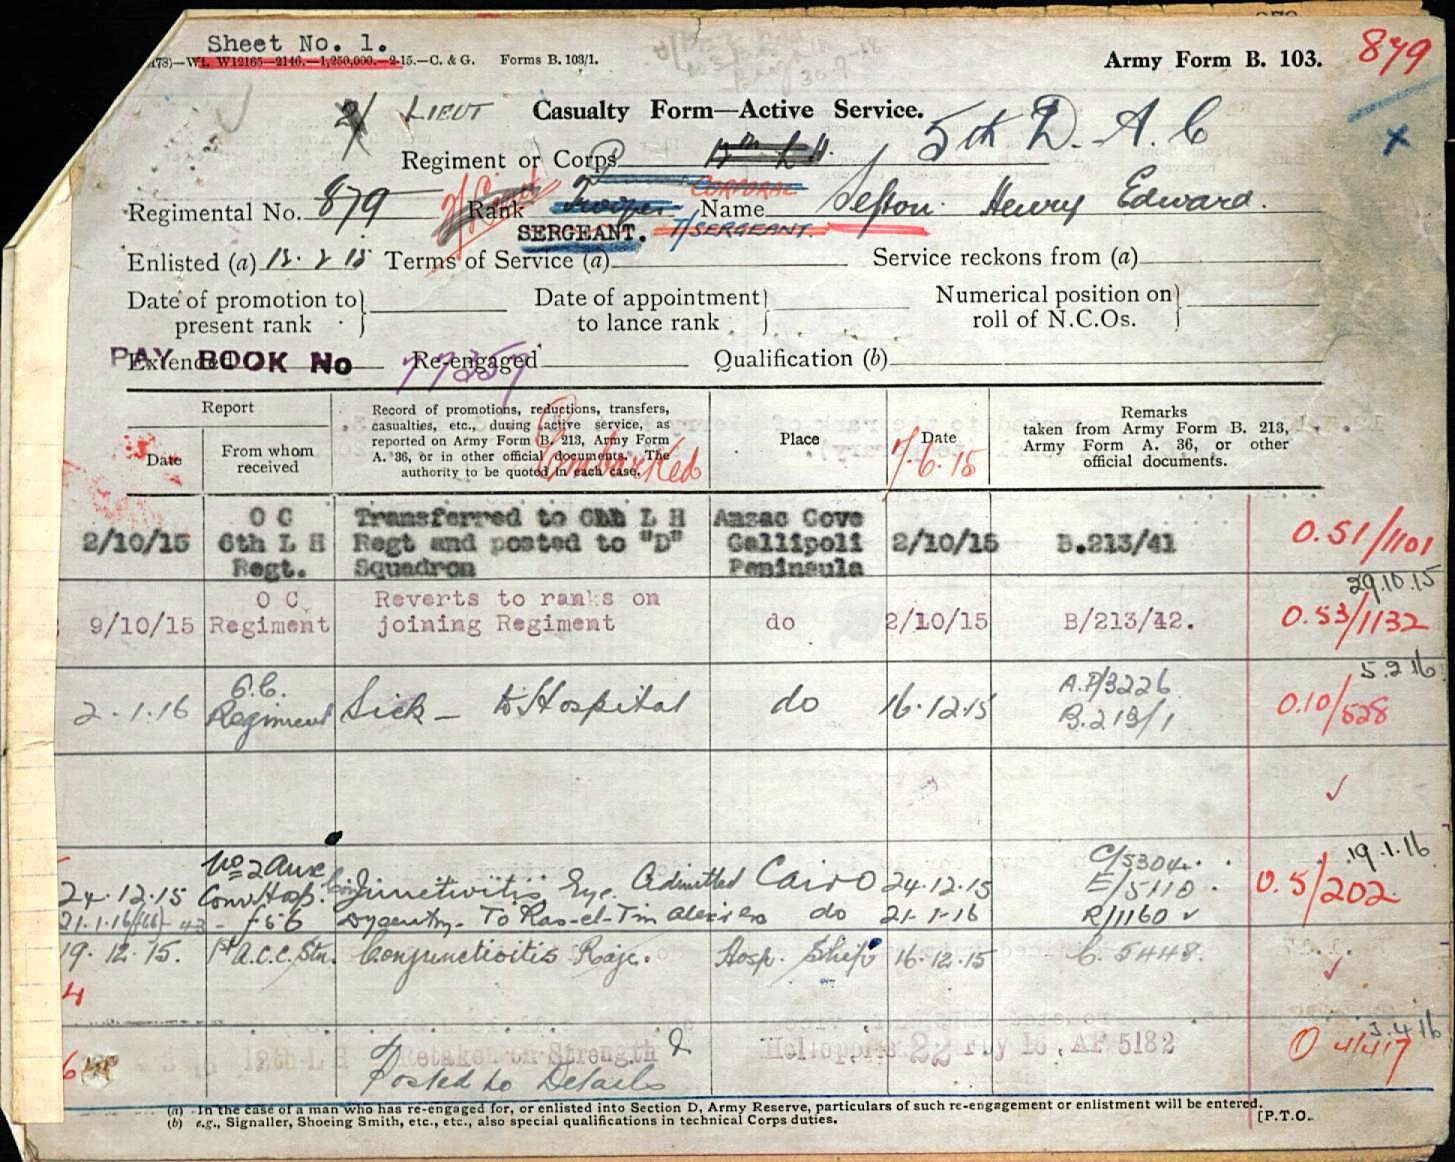 Sheet No. 1.
W12165—2140.—1,250,000.—2-15.—C. & G. Forms B. 103/1.
Army Form B. 103.
879
2/ LIEUT
Casualty Form—Active Service.
5th D. A. C
Regiment or Corps
Regimental No. 879 Rank Trooper CORPORAL Name Sefton. Henry Edward.
SERGEANT. T/SERGEANT.
Enlisted (a) Terms of Service (a) Service reckons from (a)
Date of promotion to present rank
Date of appointment to lance rank
Numerical position on roll of N.C.Os.
Extended PAY BOOK No 77357 Re-engaged Qualification (b)
Report
Date
From whom received
Record of promotions, reductions, transfers, casualties, etc., during active service, as reported on Army Form B. 213, Army Form A. 36, or in other official documents. The authority to be quoted in each case.
Embarked
Place
Date
7.6.15
Remarks
taken from Army Form B. 213, Army Form A. 36, or other official documents.
2/10/15 O C 6th L H Regt. Transferred to 6th L H Regt and posted to "D" Squadron Anzac Cove Gallipoli Peninsula 2/10/15 B.213/41 0.51/1101
29.10.15
9/10/15 O C Regiment Reverts to ranks on joining Regiment do 2/10/15 B/213/42. 0.53/1132
5.2.16
2.1.16 O.C. Regiment Sick — to Hospital do 16.12.15 A.P/3226 B.213/1 0.10/528
19.1.16
24.12.15 No 2 Aux Conv Hosp. Conjunctivitis Eye. Admitted Cairo 24.12.15 C/5304. E/5110. 0.5/202
21.1.16 Dysentry. To Ras-el-Tin do 21-1-16 R/1160
19.12.15. 1st A.C.C. Stn. Conjunctivitis Hosp. Ship 16.12.15 C. 5448.
3.4.16
12th L H Retaken on Strength & Posted to Details Heliopolis 22 16 AF 5182
(a) In the case of a man who has re-engaged for, or enlisted into Section D, Army Reserve, particulars of such re-engagement or enlistment will be entered.
(b) e.g., Signaller, Shoeing Smith, etc., etc., also special qualifications in technical Corps duties.
[P.T.O.